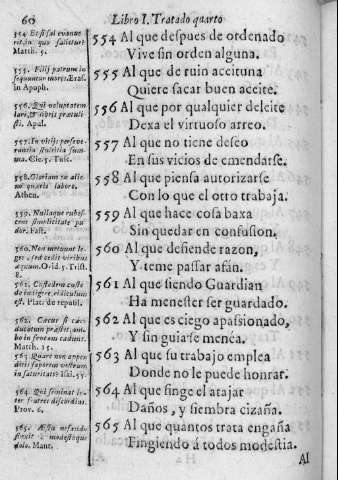 60
Libro I. Tratado quarto
554 Al que despues de ordenado
Vive sin orden alguna.
555 Al que de ruin aceituna
Quiere sacar buen aceite.
556 Al que por qualquier deleite
Dexa el virtuoso arreo.
557 Al que no tiene deseo
En sus vicios de emendarse.
558 Al que piensa autorizarse
Con lo que el otro trabaja.
559 Al que hace cosa baxa
Sin quedar en confusion.
560 Al que defiende razon,
Y teme passar afán.
561 Al que siendo Guardian
Ha menester ser guardado.
562 Al que es ciego apassionado,
Y sin guiarse menea.
563 Al que su trabajo emplea
Donde no le puede honrar.
564 Al que finge el atajar
Daños, y siembra cizaña.
565 Al que quantos trata engaña
Fingiendo á todos modestia.
Al
554 Et si sal evanue
rit, in quo salietur?
Matth. 5.
555. Filij patrum in
sequuntur mores. Eras.
in Apoph.
556. Qui voluptatem
Apul.
557. In vitijs perseve-
rantia stultitia sum
ma. Cic. 5. Tusc.
558. Gloriam ex alie
no quæris labore.
Athen.
559. Nullaque rubes-
cens simplicitate pu
dor. Fast.
560. Non metuunt le-
ges, sed cedit viribus
æquum. Ovid. 5. Trist.
8.
561. Custodem custo
de indigere, ridiculum
est. Plat. de republ.
562. Cæcus si cæ-
co ducatum præstet, am-
bo in foveam cadunt.
Matth. 15.
563 Quare non appen
ditis
in saturitate? Isai. 55.
564. Qui seminat in-
ter fratres discordias.
Prov. 6.
565. Astu
modestoque
dolo. Mant.